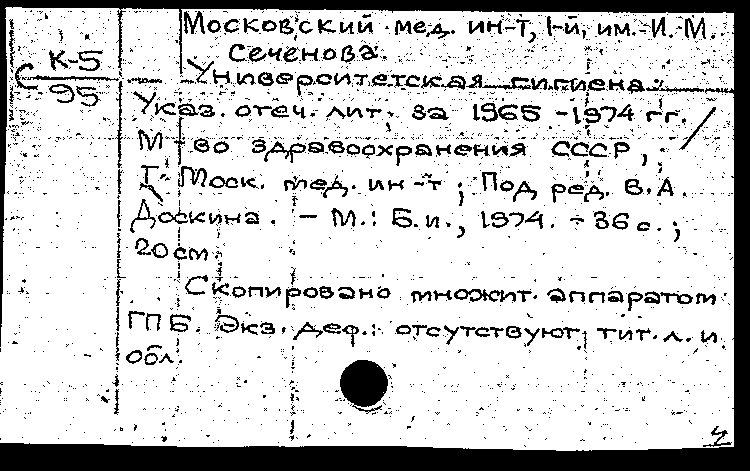 Московский мед. ин-т, 1-й, им. И. М.
Сеченова.
С К-5
95
Университетская гигиена:
Указ. отеч. лит. за 1965-1974 гг. /
М-во здравоохранения СССР,
I Моск. мед. ин-т; Под ред. В.А.
Доскина. - М.: Б.и., 1974. - 36 с.;
20 см
Скопировано множит. аппаратом
ГПБ. Экз. деф.: отсутствуют тит. л. и
обл.